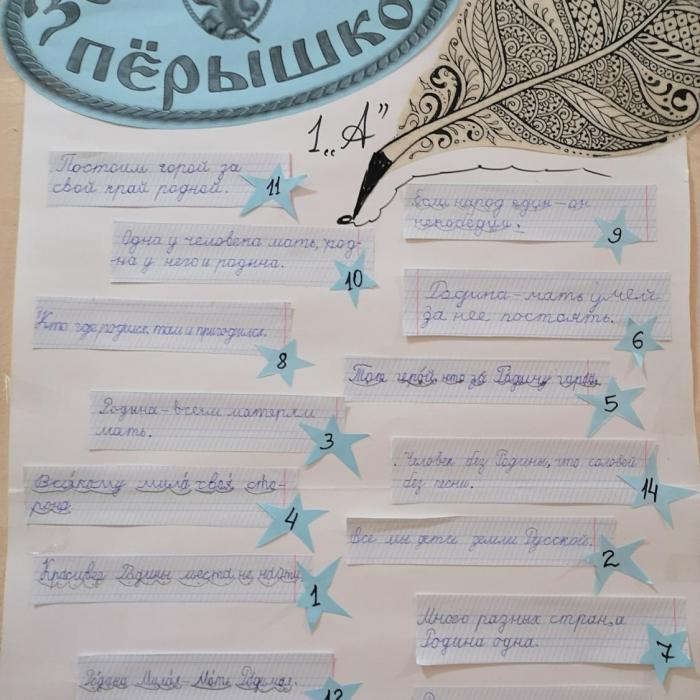 пёрышко
1 „А”
Постоим горой за
свой край родной.
11
Если народ един – он
непобедим.
9
Одна у человека мать, род-
на у него и родина.
10
Родина – мать умей
за нее постоять.
6
Кто где родился, там и пригодился.
8
Тот герой, кто за Родину горой.
5
Родина – всем матерям
мать.
3
Человек без Родины, что соловей
без песни.
14
Всякому мила своя сто-
рона.
4
Все мы дети земли Русской.
2
Красивей Родины места не найти.
1
Много разных стран, а
Родина одна.
7
Родина Милая – Мать Родимая.
12